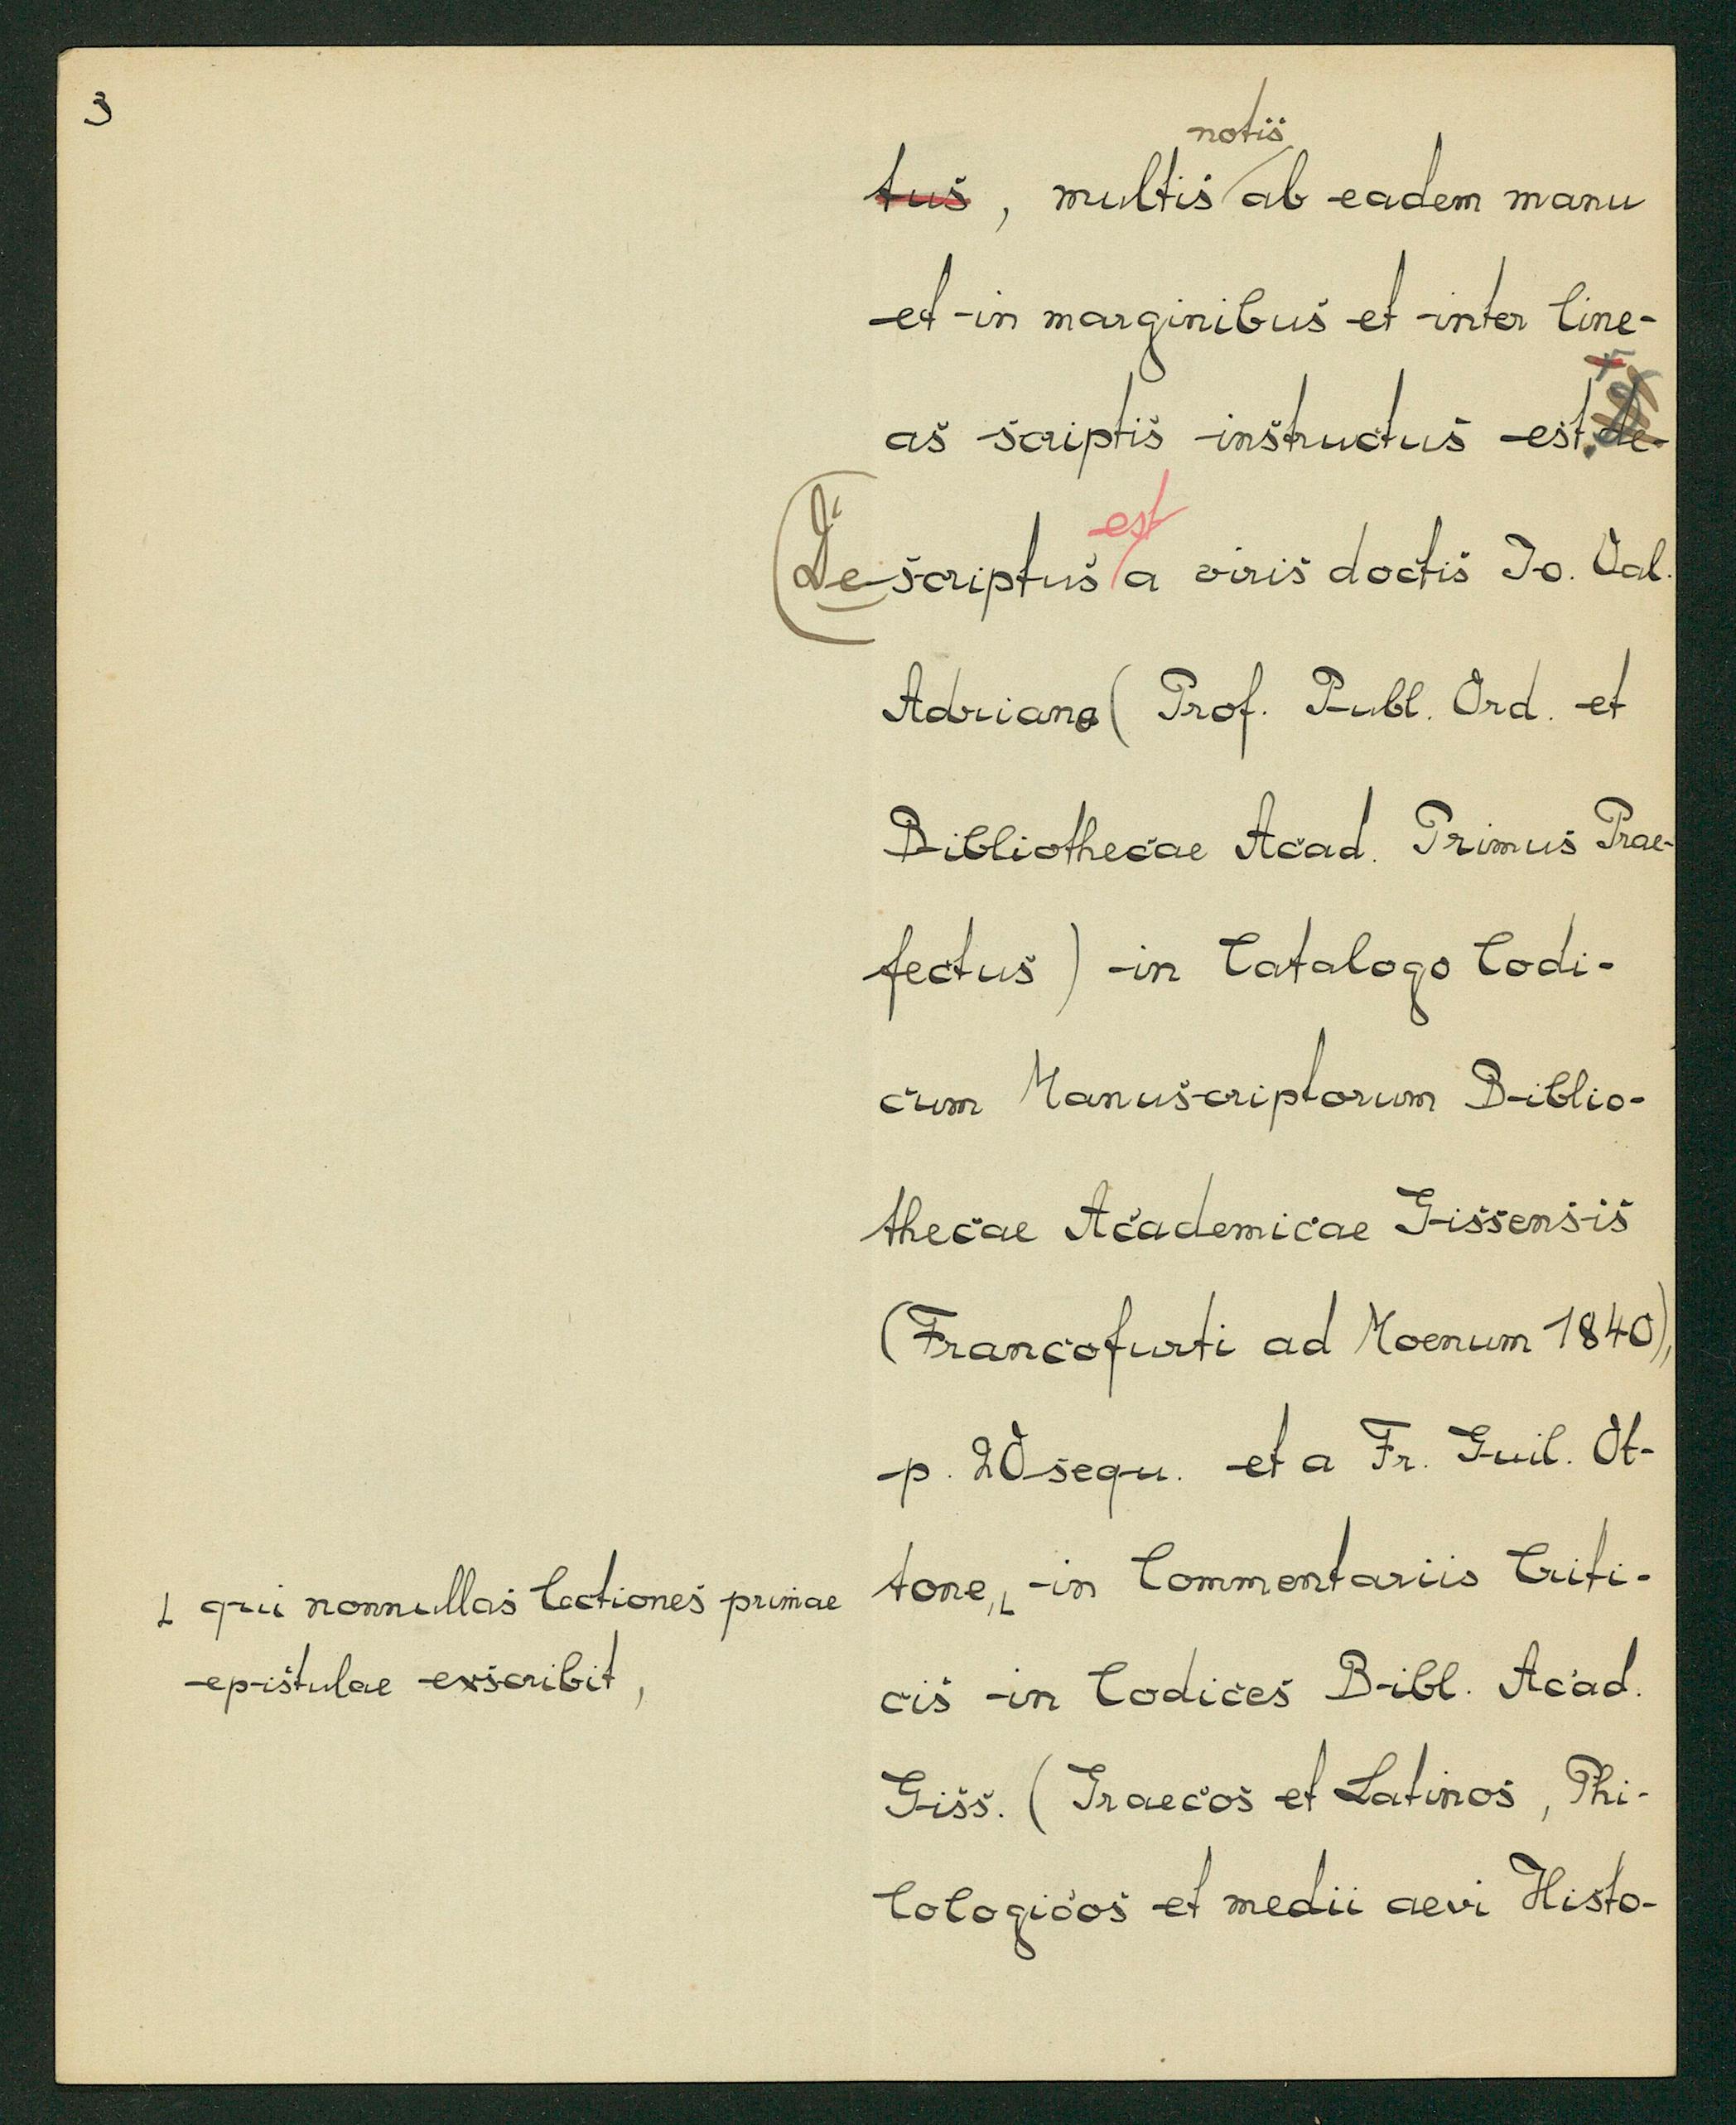 3
notis
tus, multis ab eadem manu
et in marginibus et inter line-
as scriptis instructus est. de-
est
Descriptus a viris doctis Io. Val.
Adriano (Prof. Publ. Ord. et
Bibliothecae Acad. Primus Prae-
fectus) in Catalogo Codi-
cum Manuscriptorum Biblio-
thecae Academicae Gissensis
(Francofurti ad Moenum 1840),
p. 20 sequ. et a Fr. Guil. Ot-
tone, in Commentariis Criti-
qui nonnullas lectiones primae
epistulae exscribit,
cis in Codices Bibl. Acad.
Giss. (Graecos et Latinos, Phi-
lologicos et medii aevi Histo-